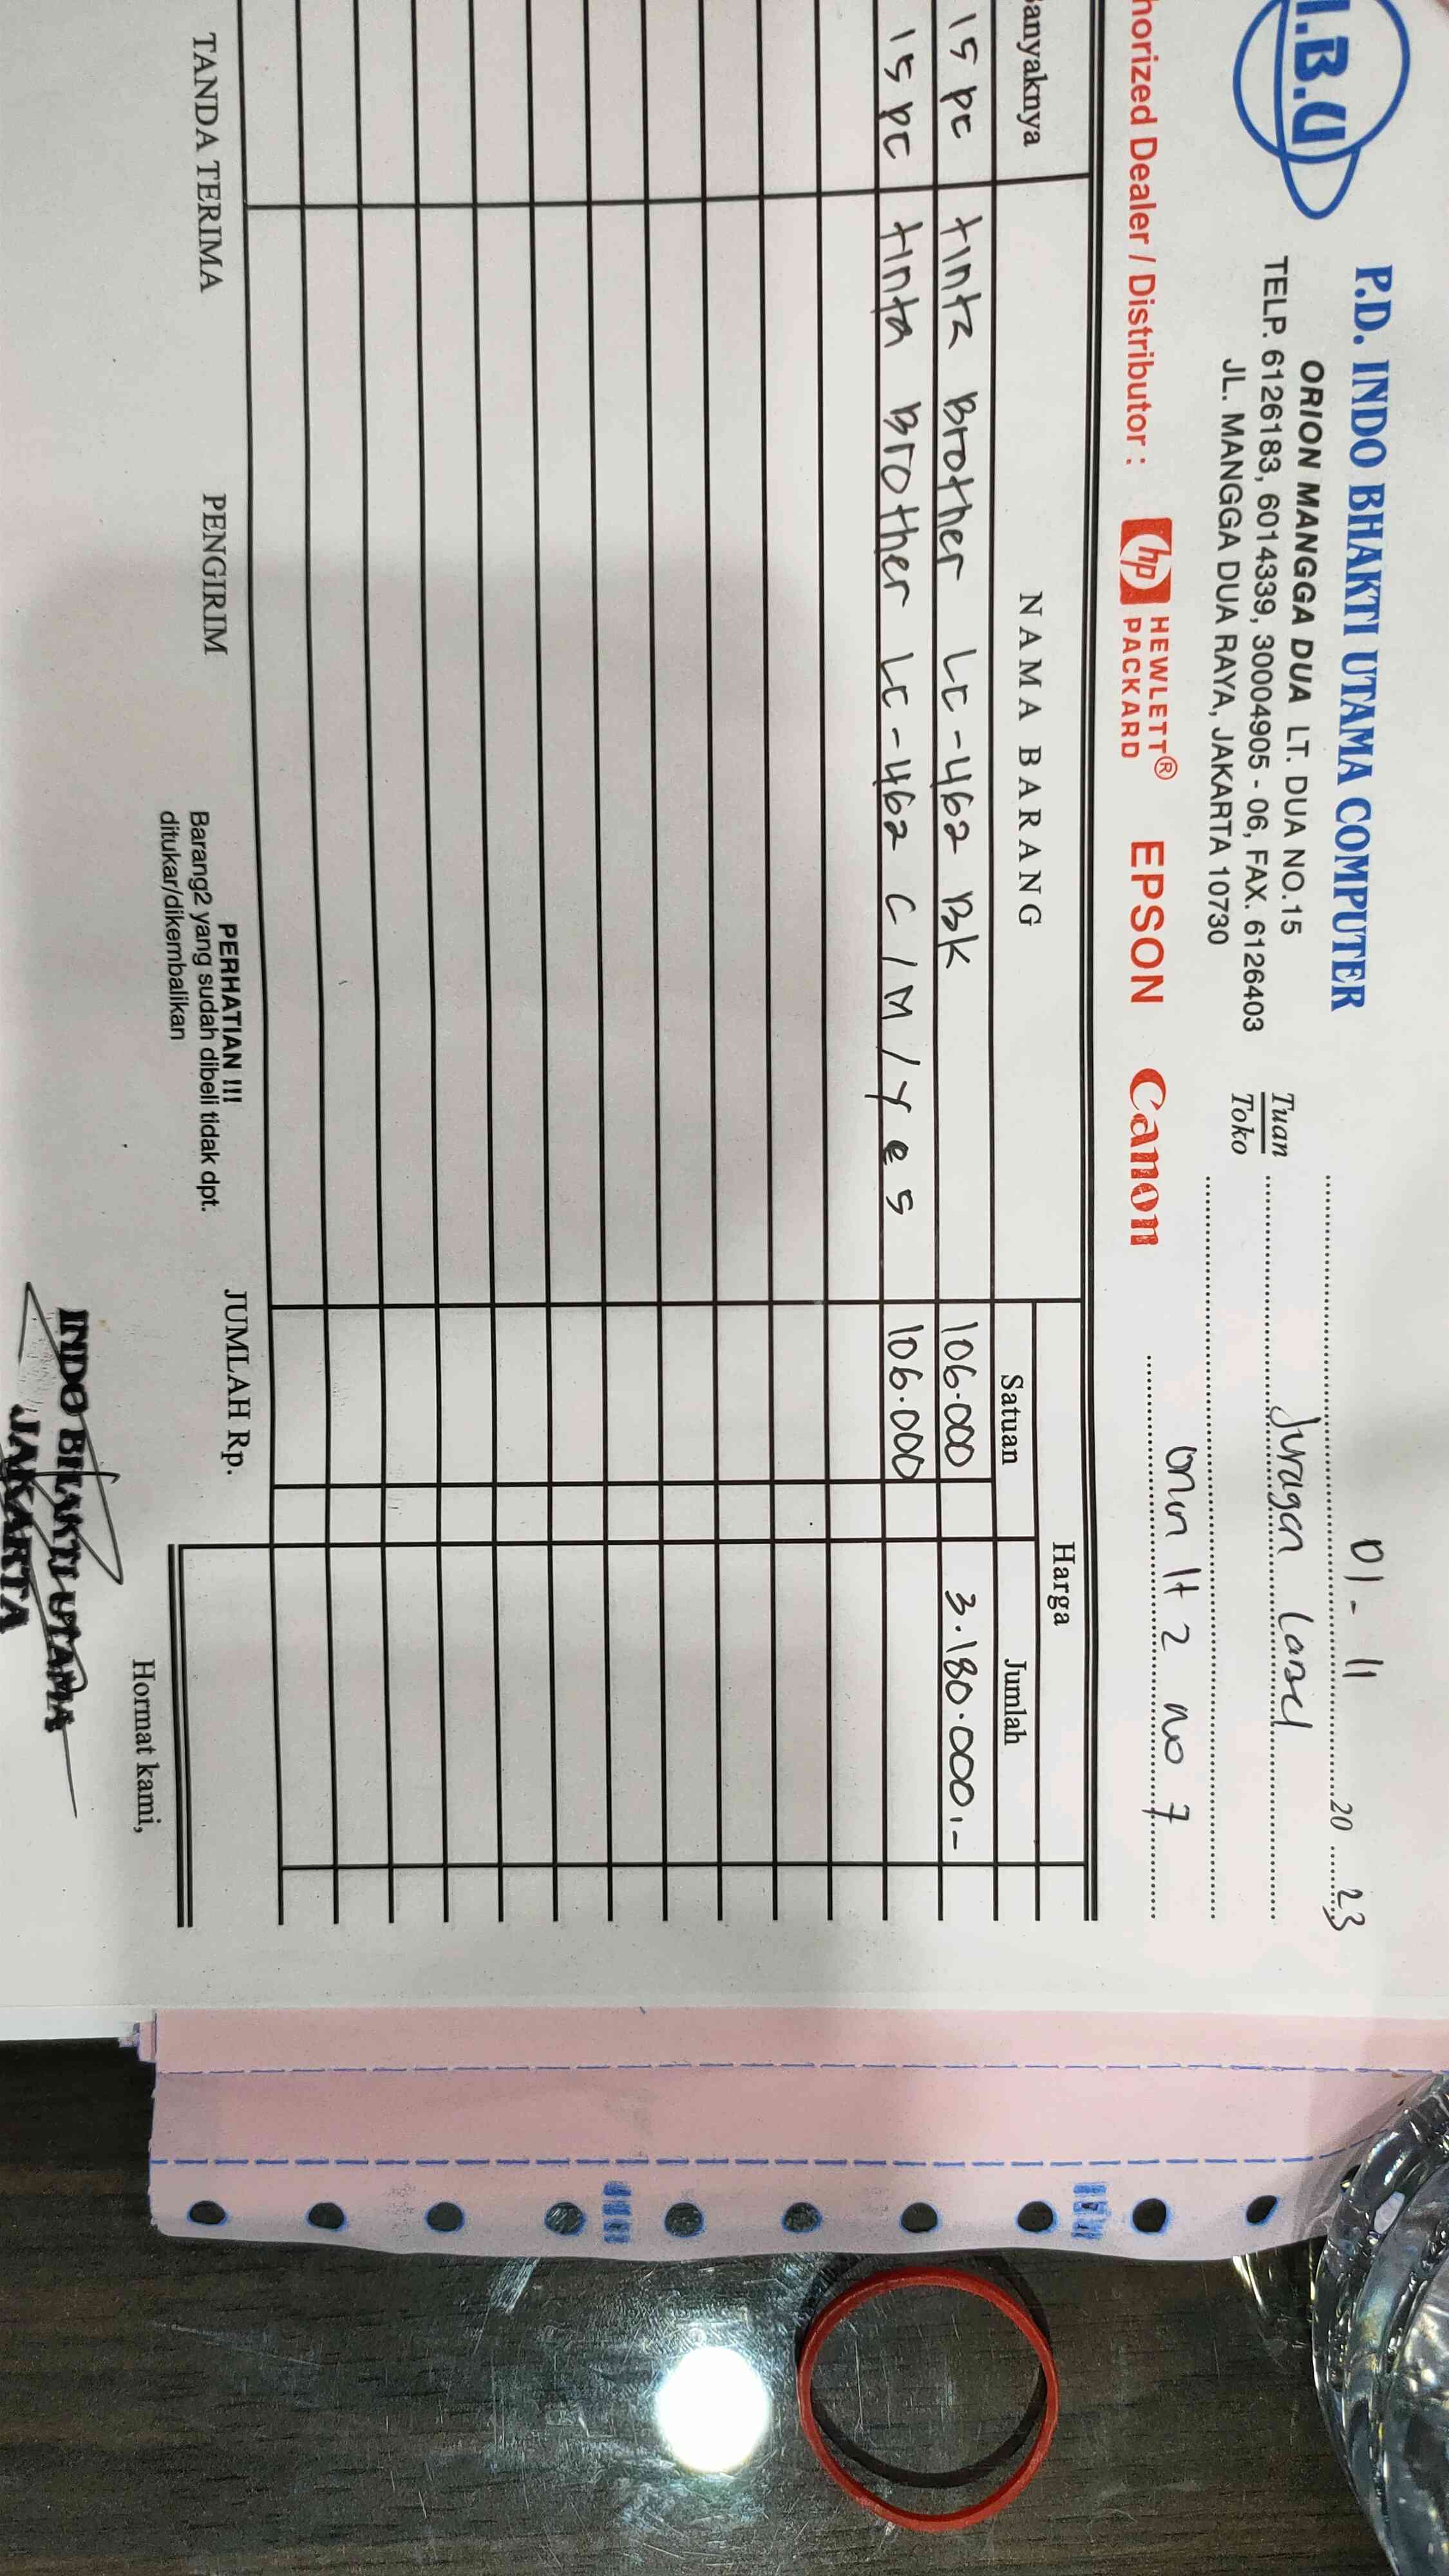 I.B.U
P.D. INDO BHAKTI UTAMA COMPUTER
ORION MANGGA DUA LT. DUA NO.15
TELP. 6126183, 6014339, 30004905 - 06, FAX. 6126403
JL. MANGGA DUA RAYA, JAKARTA 10730
01 - 11 20 23
Tuan
Toko
Juragan
lt 2 no 7
horized Dealer / Distributor : hp HEWLETT® PACKARD EPSON Canon
anyaknya NAMA BARANG Harga
Satuan Jumlah
15 pc tinta Brother LC-462 BK 106.000 3.180.000,-
15 pc tinta Brother LC-462 C/M/Y @ 5 106.000
TANDA TERIMA PENGIRIM JUMLAH Rp.
PERHATIAN !!!
Barang2 yang sudah dibeli tidak dpt.
ditukar/dikembalikan
Hormat kami,
INDO BHAKTI UTAMA
JAKARTA